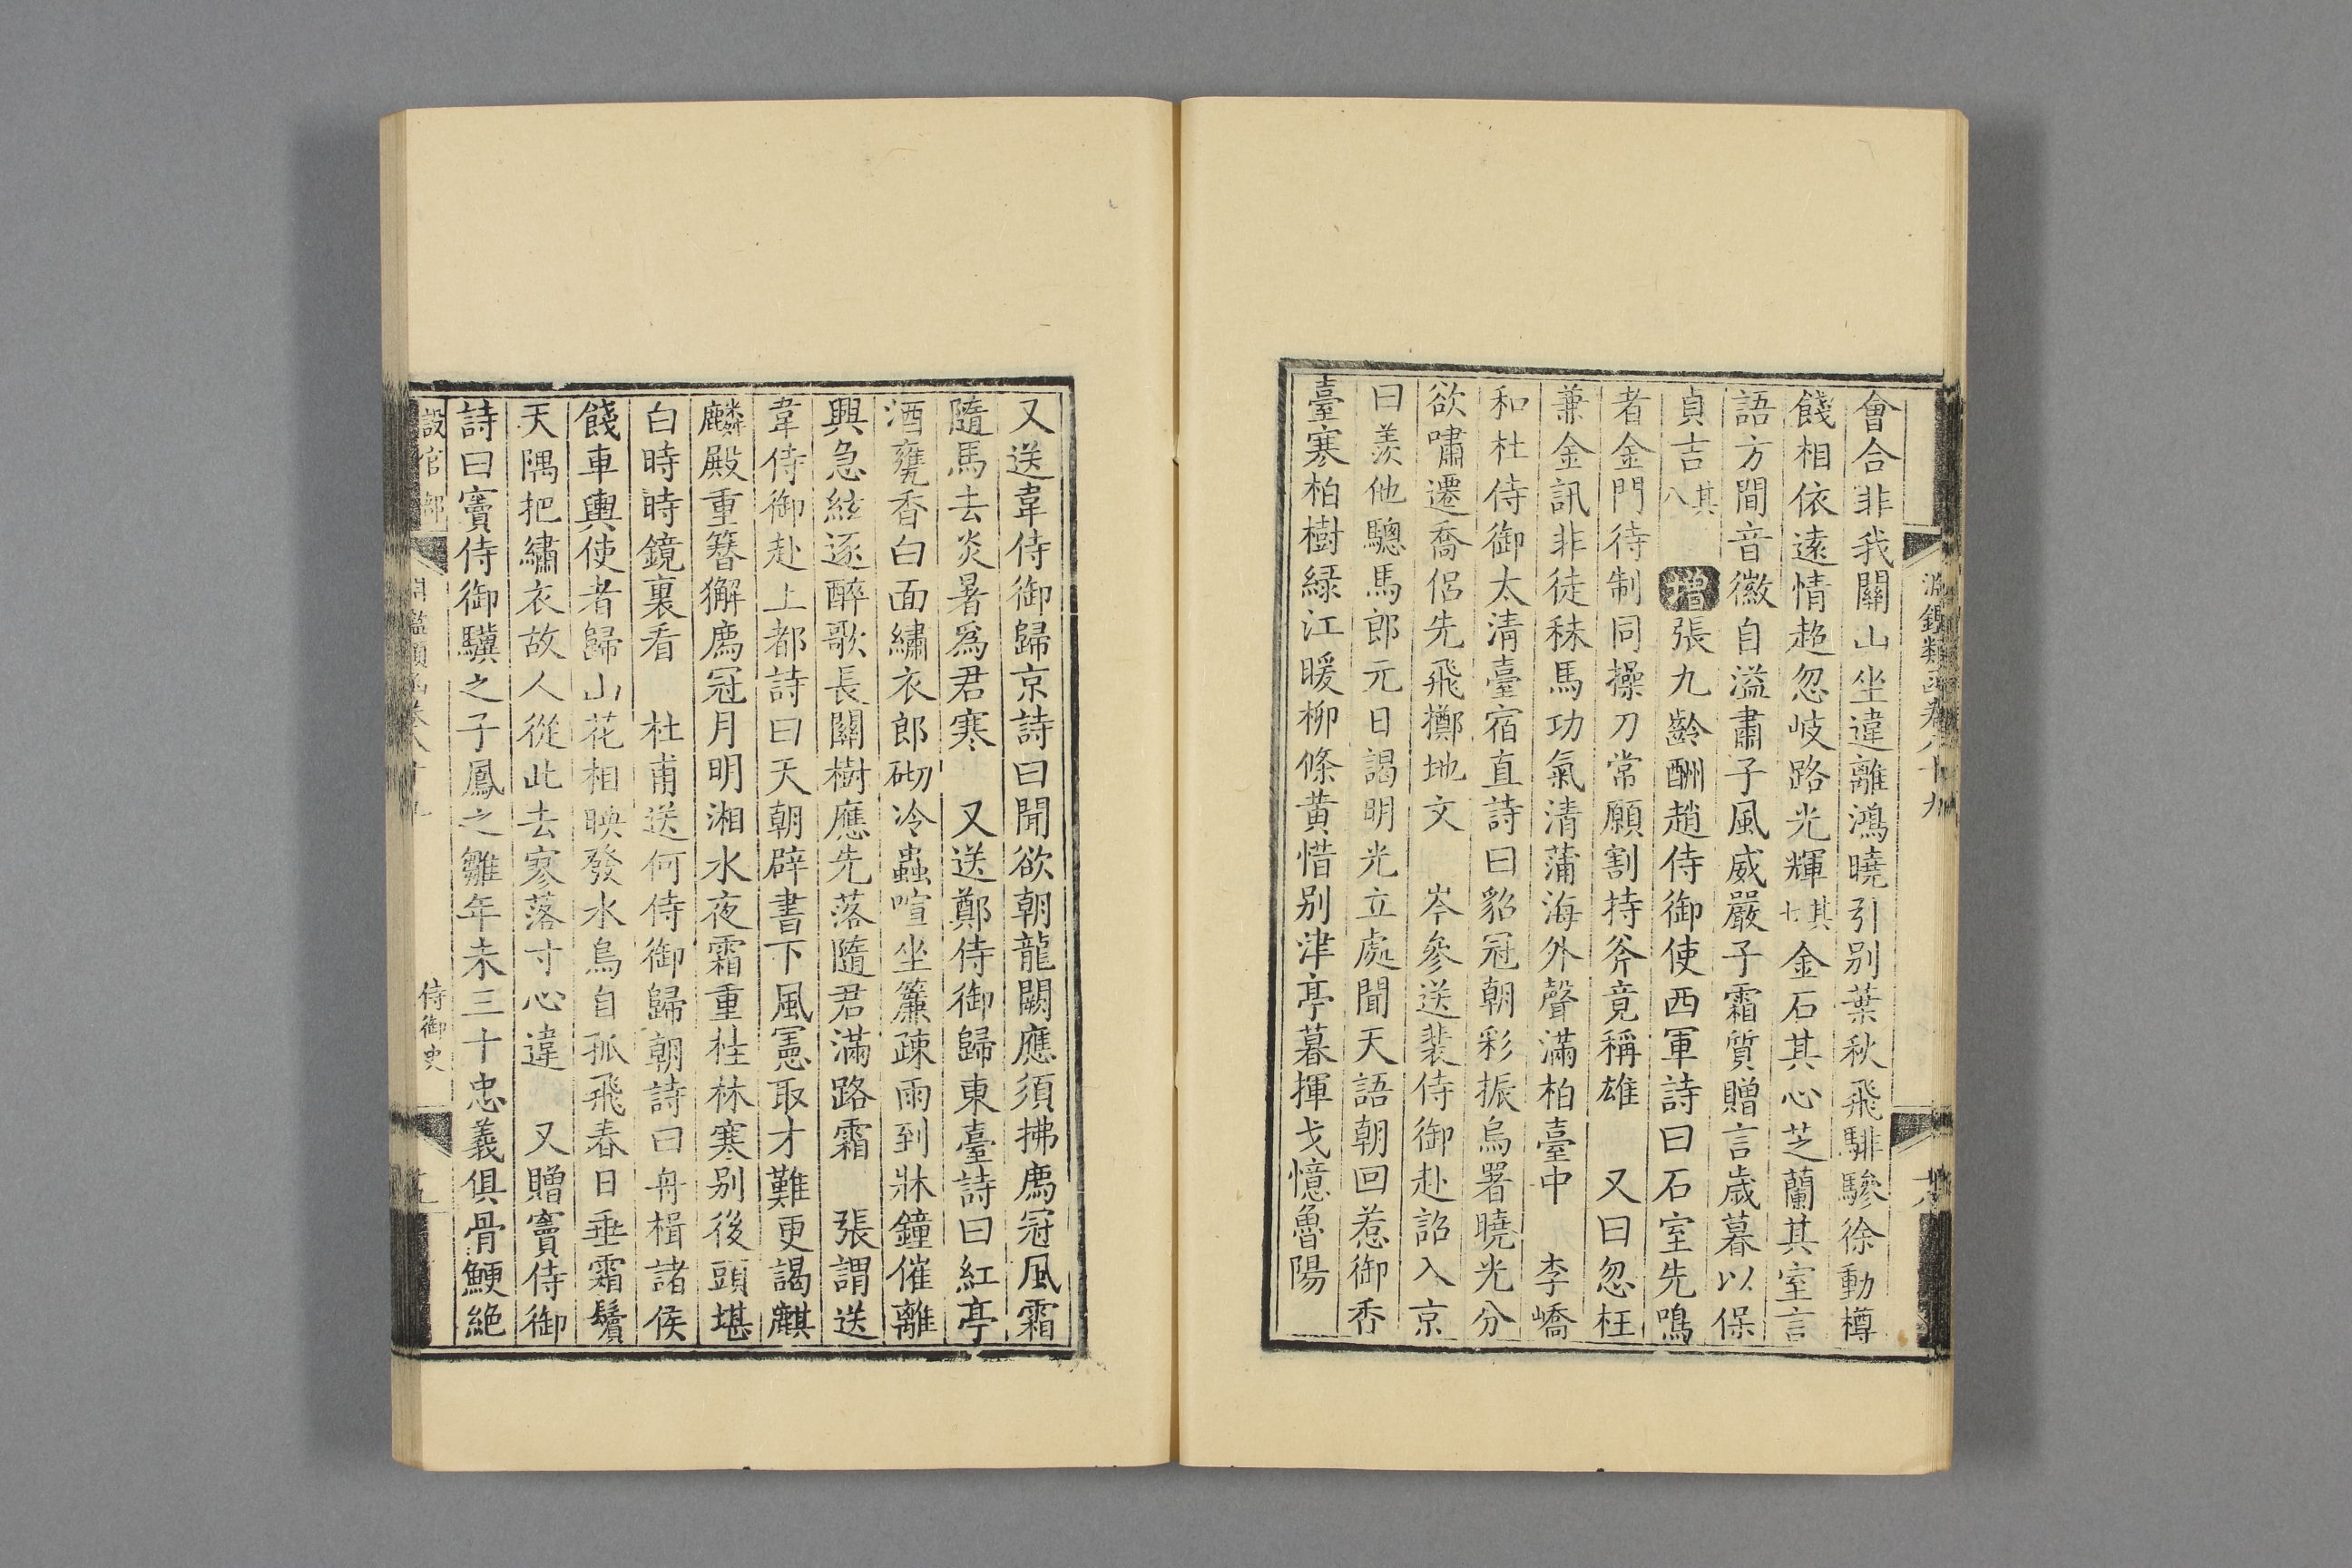 淵鑑類函卷八十九
會合非我關山坐違離鴻曉引別葉秋飛騑驂徐動樽
餞相依遠情超忽岐路光輝其七金石其心芝蘭其室言
語方間音徽自溢肅子風威嚴子霜質贈言歲暮以保
貞吉其八 增張九齡酬趙侍御使西軍詩曰石室先鳴
者金門待制同操刀常願割持斧竟稱雄 又曰忽枉
兼金訊非徒秣馬功氣清蒲海外聲滿柏臺中 李嶠
和杜侍御太清臺宿直詩曰貂冠朝彩振烏署曉光分
欲嘯遷喬侶先飛擲地文 岑參送裴侍御赴詔入京
曰羨他驄馬郎元日謁明光立處聞天語朝回惹御香
臺寒柏樹綠江暖柳條黃惜別津亭暮揮戈憶魯陽
又送韋侍御歸京詩曰聞欲朝龍闕應須拂廌冠風霜
隨馬去炎暑爲君寒 又送鄭侍御歸東臺詩曰紅亭
酒甕香白面繡衣郎砌冷蟲喧坐簾疎雨到牀鐘催離
興急絃逐醉歌長關樹應先落隨君滿路霜 張謂送
韋侍御赴上都詩曰天朝辟書下風憲取才難更謁麒
麟殿重簪獬廌冠月明湘水夜霜重桂林寒別後頭堪
白時時鏡裏看 杜甫送何侍御歸朝詩曰舟楫諸侯
餞車輿使者歸山花相映發水鳥自孤飛春日垂霜鬢
天隅把繡衣故人從此去寥落寸心違 又贈竇侍御
詩曰竇侍御驥之子鳳之雛年未三十忠義俱骨鯁絕
設官部
侍御史